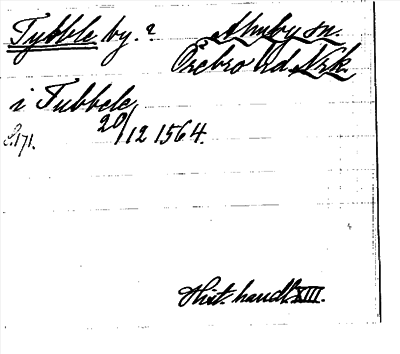 Tybble by.? Almby sn.
Örebro hd. Nrk.
i Tubbele
20/12 1564.
S.171.
Hist. handl. XIII.